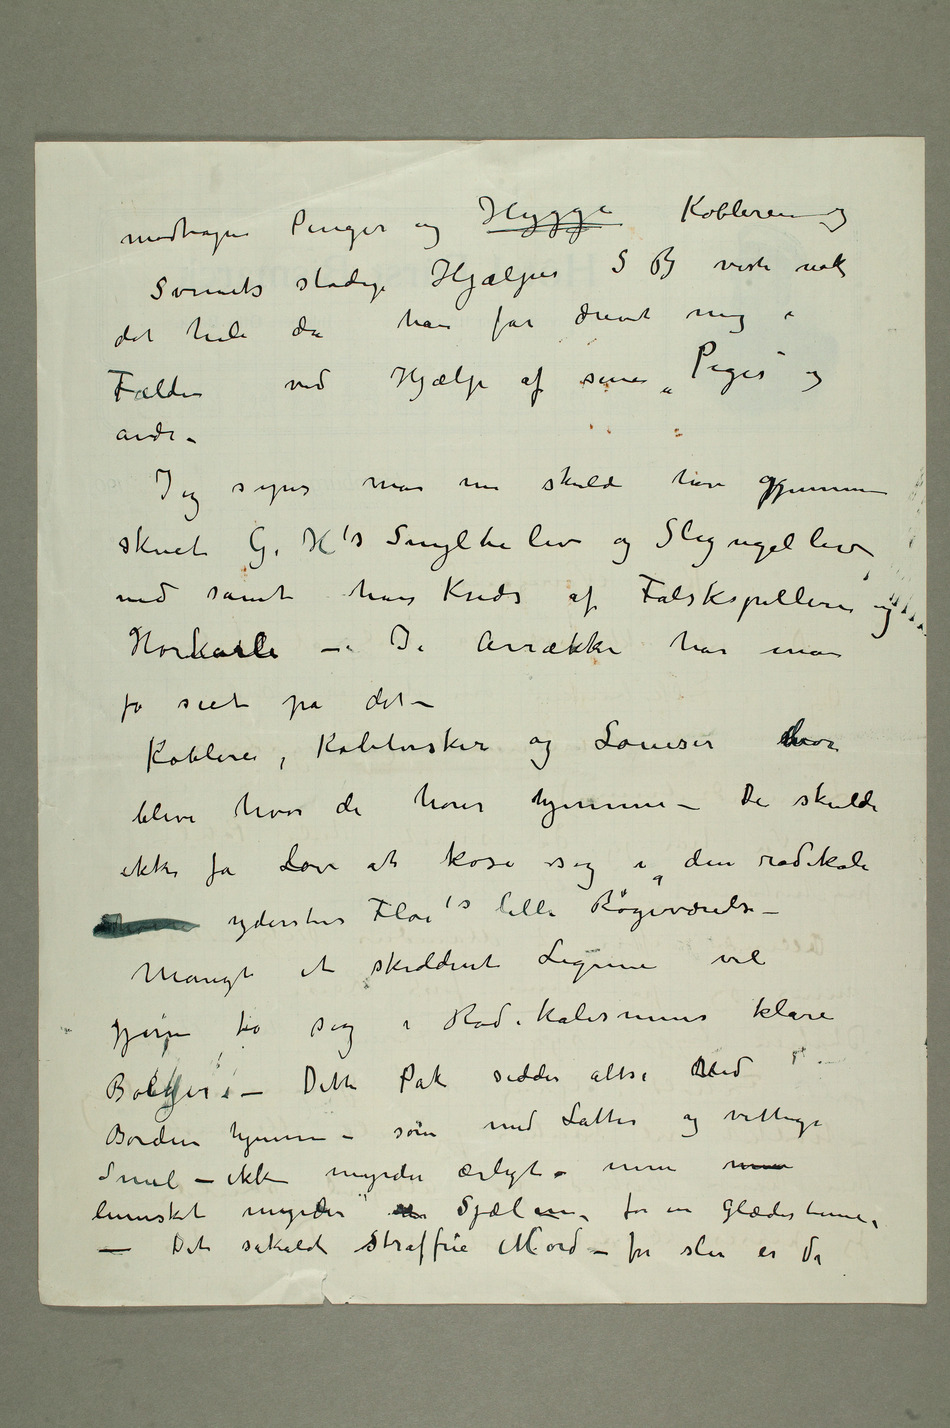 modtagne Penger og Hygge Kobleren og
Svinets stadige Hjælper S B viste nok
det hele da han får drevet mig i
Fælden ved Hjælp af sine „Piger“ og
andr –
Jeg synes man nu skulde have gjennem
skuet G. H's Snylteliv og Slyngelliv
med samt hans Kreds af Falskspillere og
Horkarle –. I Arrække har man
jo seet på det –
Koblere, Koblersker og Louiser
blive hvor de hører hjemme – De skulde
ikke få Lov at kose sig i den radikale
ydersten Fløi's lille Røgeværelse –
Mangt et skiddent Legeme vil
gjerne to sig i Radikalismens klare
Bølger. – Dette Pak sidder altså Ved
Bordene hjemme – som med Latter og vittige
Smil – ikke myrder ærligt – men
lumsket myrder Sjælen, for en Glædestime,
– Det såkaldte Straffrie Mord – for slen er da